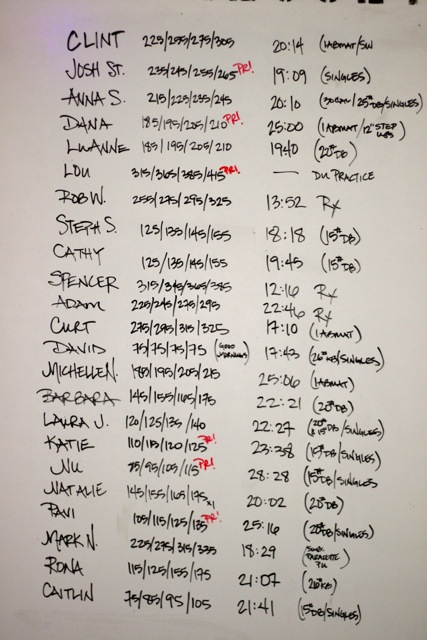 CLINT 225/255/275/305 20:14 (1ABMAT/SW
JOSH ST. 235/245/255/265 PR! 19:09 (SINGLES)
ANNA S. 215/225/235/245 20:10 /25# DB/SINGLES)
DANA 185/195/205/210 PR! 25:00 (1ABMAT/12" STEP UPS)
LUANNE 185/195/205/210 19:40 (20# DB)
LOU 315/365/385/415 PR! — DU PRACTICE
ROB W. 255/275/295/325 13:52 Rx
STEPH S. 125/135/145/155 18:18 (15# DB)
CATHY 125/135/145/155 19:45 (15# DB)
SPENCER 315/345/365/385 12:16 Rx
ADAM 225/245/275/295 22:46 Rx
CURT 275/295/315/325 17:10 (1ABMAT)
DAVID 75/75/75/75 (GOOD MORNINGS) 17:43 (26# KB/SINGLES)
MICHELLE N. 185/195/205/215 25:06 (1ABMAT)
BARBARA 145/155/165/175 22:21 (20# DB)
LAURA J. 120/125/135/140 22:27 (20# & 15# DB/SINGLES)
KATIE 110/115/120/125 PR! 23:38 (15# DB/SINGLES)
NU 75/95/105/115 PR! 28:28 (15# DB/SINGLES
NATALIE 145/155/165/175 x1 20:02 (20# DB)
PAVI 105/115/125/135 PR! 25:16 (20# DB/SINGLES)
MARK N. 225/275/315/335 18:29 (SUB. PARALETTE P.U.)
RONA 115/125/155/175 21:07 (26# KB)
CAITLIN 75/85/95/105 21:41 (15# DB/SINGLES)